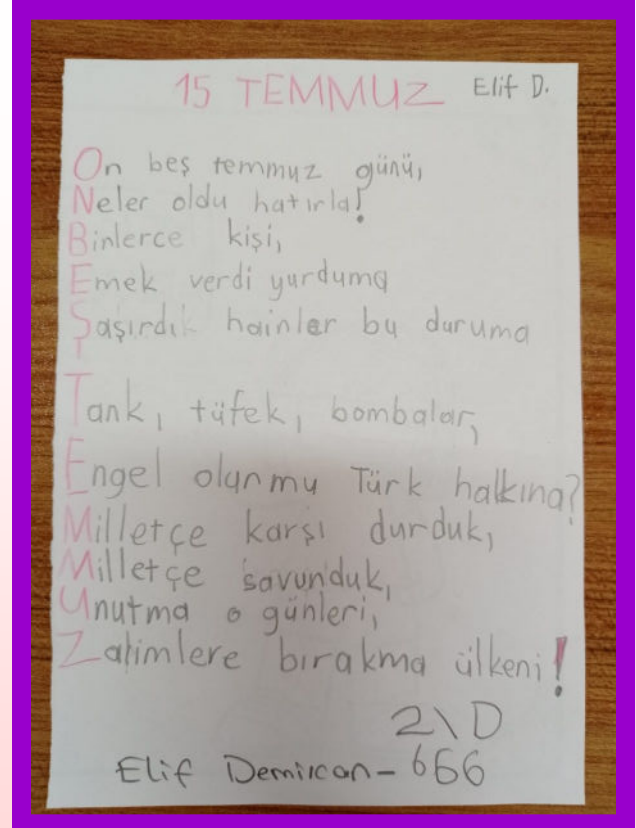 15 TEMMUZ Elif D.
On beş temmuz günü,
Neler oldu hatırla!
Binlerce kişi,
Emek verdi yurduma
Şaşırdık hainler bu duruma
Tank, tüfek, bombalar,
Engel olurmu Türk halkına?
Milletçe karşı durduk,
Milletçe savunduk,
Unutma o günleri,
Zalimlere bırakma ülkeni!
2\D
Elif Demircan-666